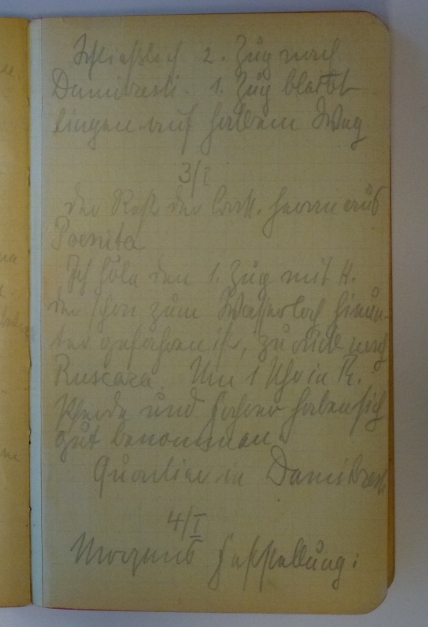 Schließlich 2. Zug nach
Dumitresti. 1. Zug bleibt
liegen auf halbem Weg
3/I
der Rest der Komp. heran aus
Poenita.
Ich hole den 1. Zug mit H.
der schon zum hinun-
ter gefahren ist, zurück nach
Ruscara. Um 1 Uhr in R.
Pferde und Fahrer haben sich
gut benommen.
Quartier in Dumitrest.
4/I
Morgens Feststellung: